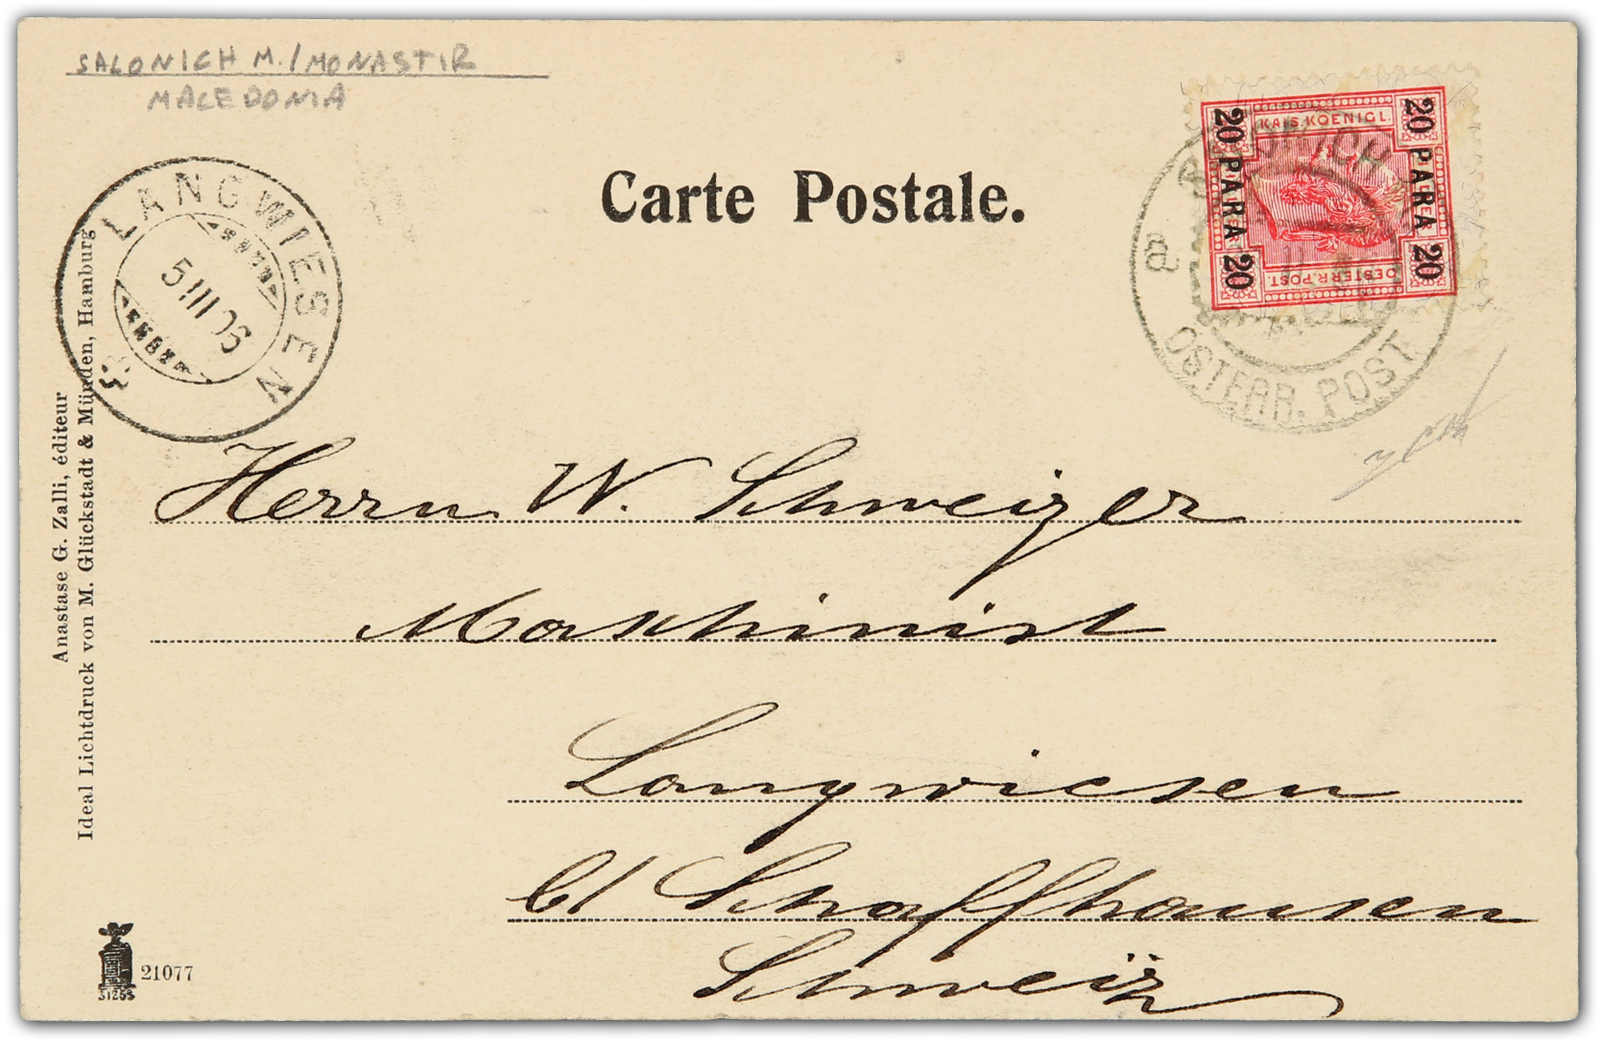 SALONICH M. / MONASTIR
MACEDONIA
Carte Postale.
LANGWIESEN
5 III 06
KAIS. KOENIGL.
OESTERR. POST.
20 PARA 20
20 PARA 20
a
ÖSTERR. POST
Herrn W. Schweizer
Maschinist
Langwiesen
b/ Schaffhausen
Schweiz
Anastase G. Zalli, éditeur
Ideal Lichtdruck von M. Glückstadt & Münden, Hamburg
21077